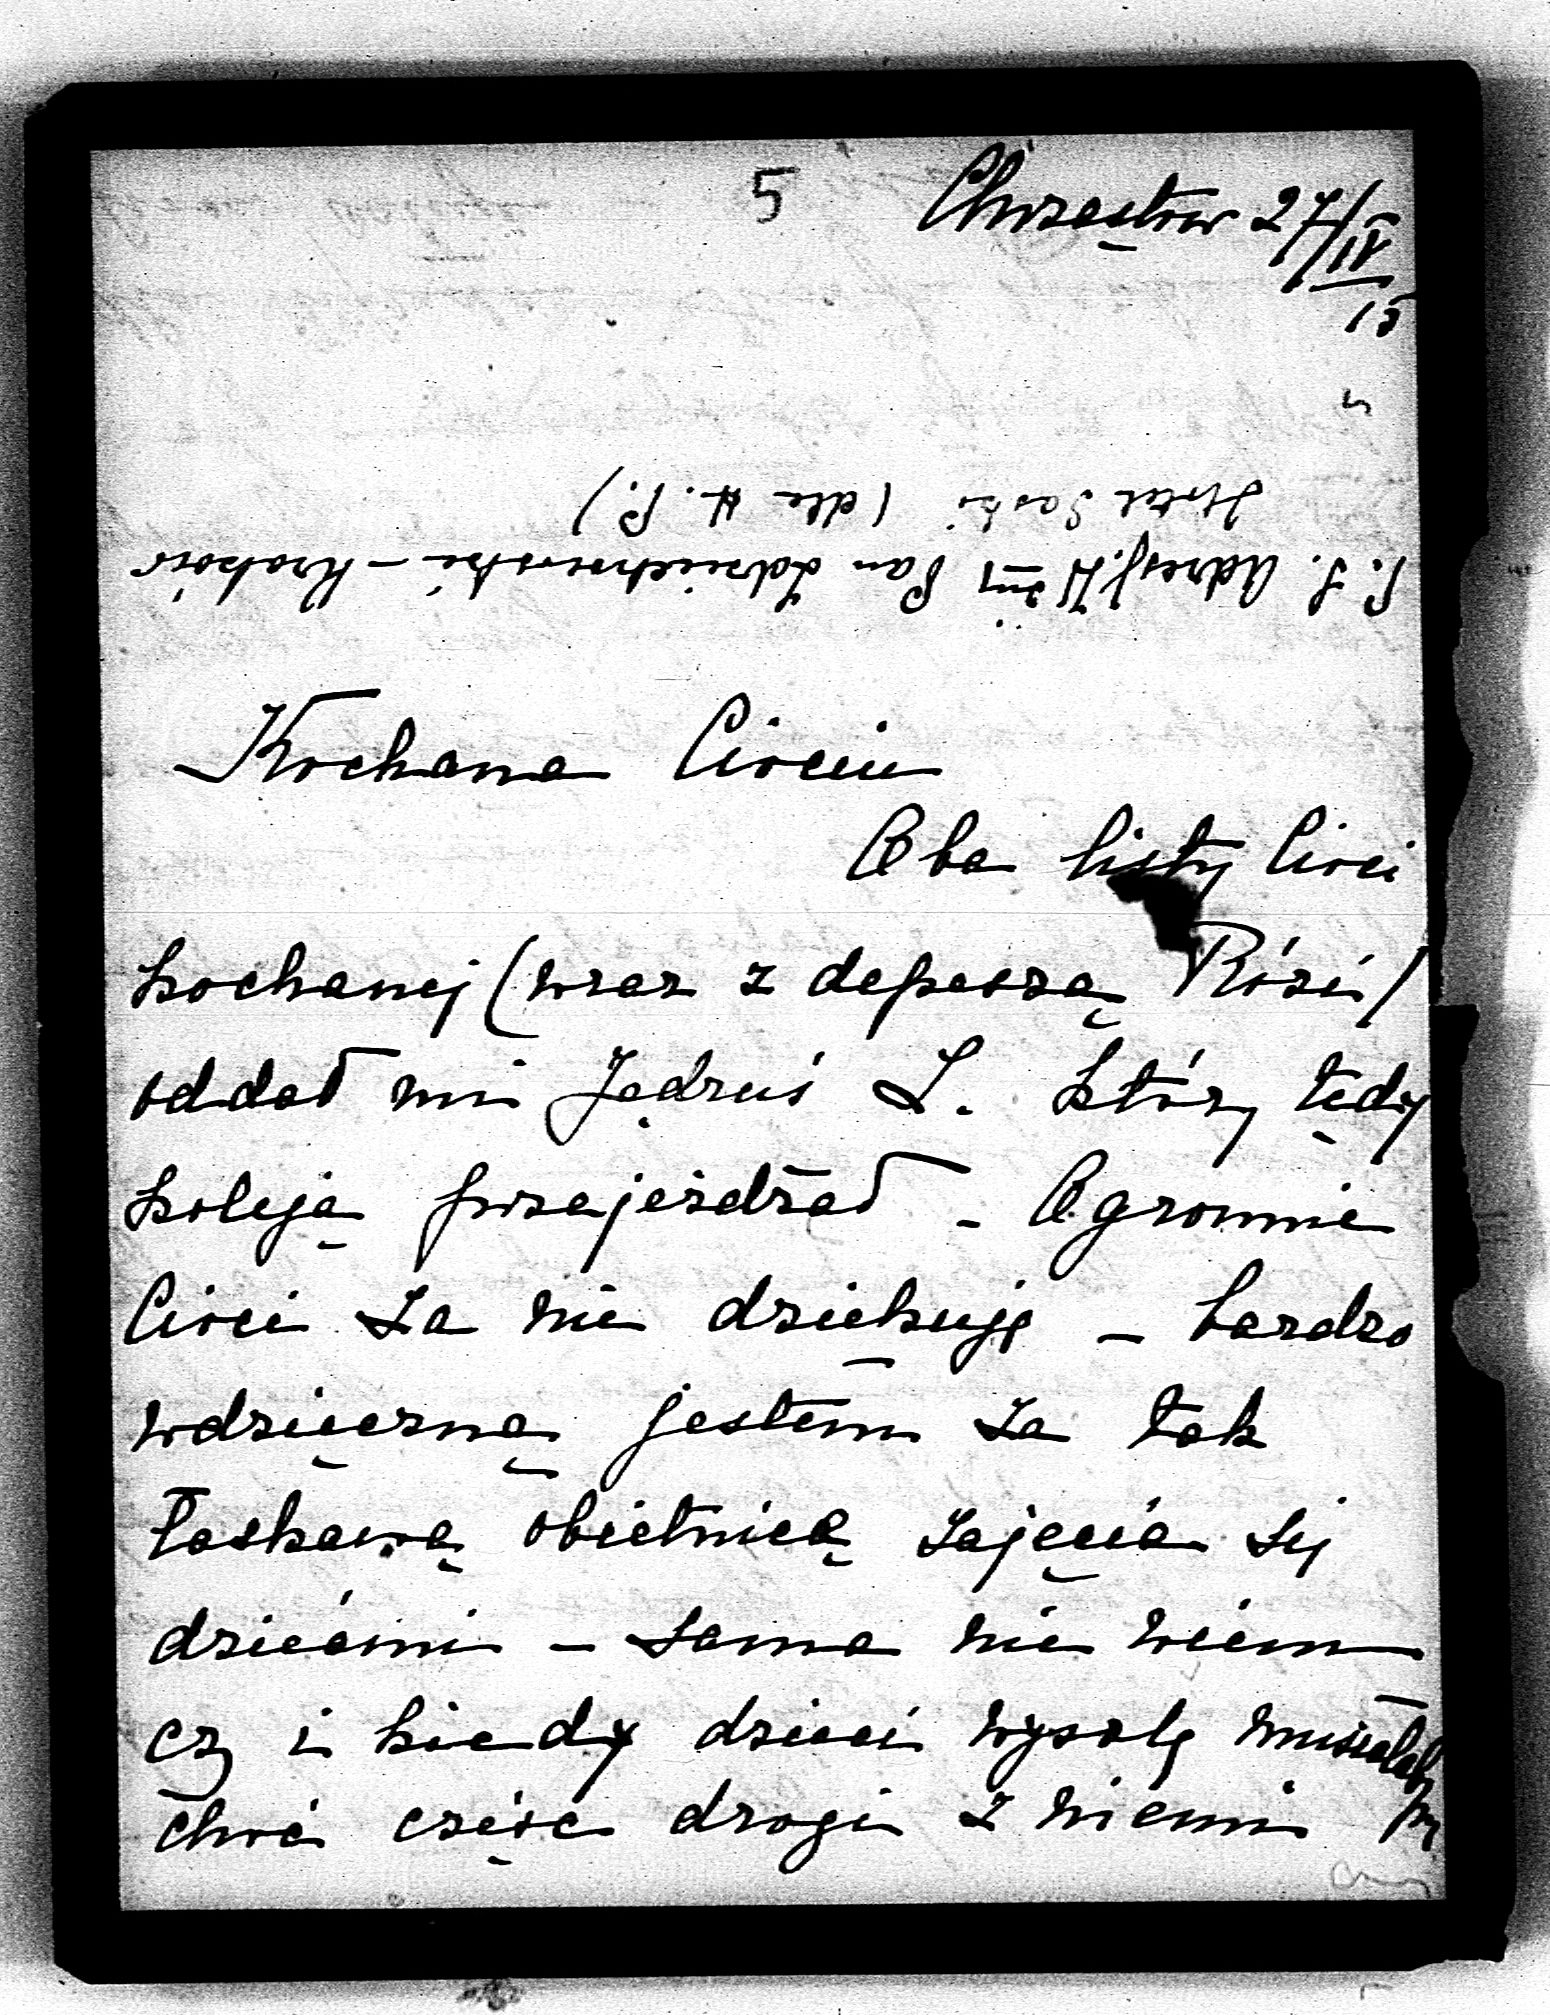 5 Chrzęstów 27/II
15
P.S. Adres J. Wżny Pan Zdziechowski – Kraków
Hotel Saski (dla H. P.)
Kochana Ciociu
Oba listy Cioci
kochanej (wraz z depeszą Rózi)
oddał mi Jędruś L. który tędy
koleją przejeżdżał – Ogromnie
Cioci za nie dziękuję – bardzo
wdzięczną jestem za tak
łaskawą obietnicę zajęcia się
dziećmi – sama nie wiem
czy i kiedy dzieci wyszlę musiałaby
choć część drogi z niemi